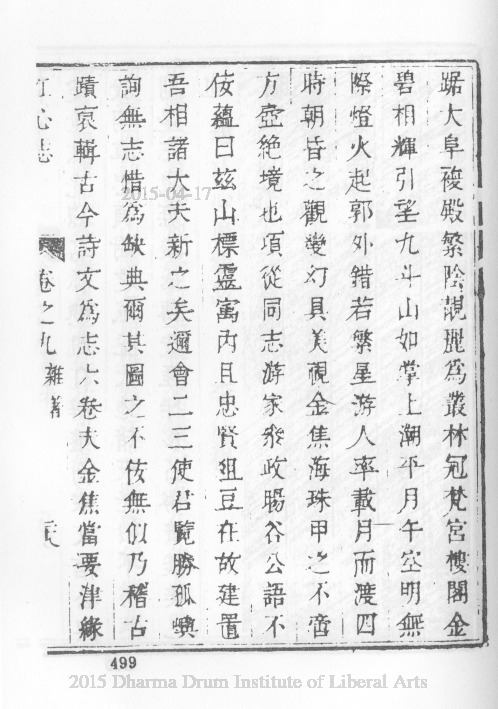 踞大阜複殿繁陰靚麗為叢林冠梵宮樓閣金
碧相輝引望九斗山如掌上潮平月午空明無
際燈火起郭外錯若繁星游人率載月而渡四
時朝昏之觀變幻具美視金焦海珠甲之不啻
方壺絕境也項從同志游家叅政暘谷公語不
佞蘊曰茲山標靈寓內且忠賢俎豆在故建置
吾相諸大夫新之矣邇會二三使君覽勝孤嶼
詢無志惜為缺典爾其圖之不佞無似乃稽古
蹟裒輯古今詩文為志六卷夫金焦當要津緣
江心志
卷之九
雜著
499
2015-04-17
2015 Dharma Drum Institute of Liberal Arts